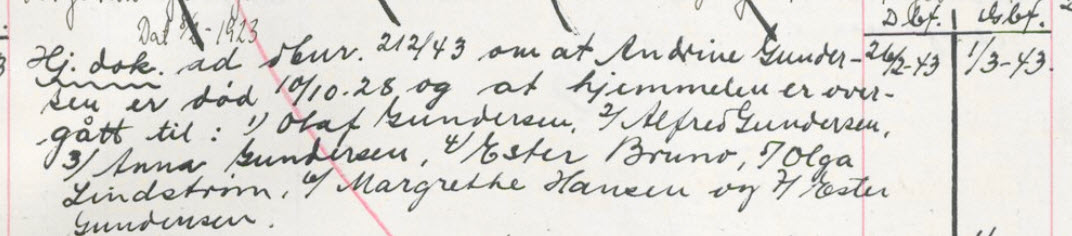 D.bf. G.bf.
Dat 8/2-1923
Hj. dok. ad dbnr. 212/43 om at Andrine Gunder- 26/2-43 1/3-43.
sen er død 10/10.28 og at hjemmelen er over-
gått til: 1/ Olaf Gundersen, 2/ Alfred Gundersen,
3/ Anna Gundersen, 4/ Ester Bruno, 5/ Olga
Lindstrøm, 6/ Margrethe Hansen og 7/ Ester
Gundersen.